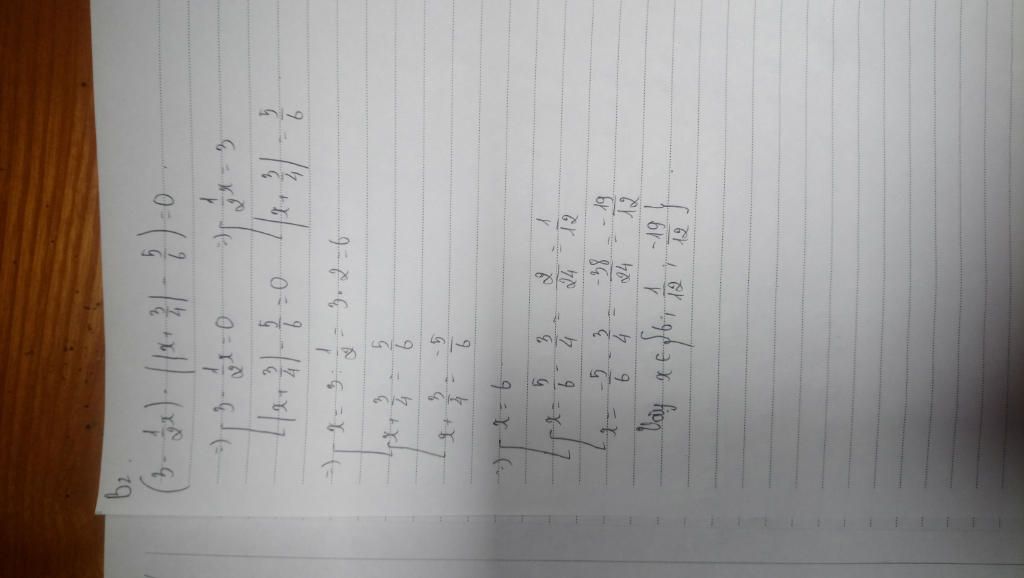 B2:
(3 - 1/2x) . (|x + 3/4| - 5/6) = 0
=> [ 3 - 1/2x = 0 => [ 1/2x = 3
[ |x + 3/4| - 5/6 = 0 [ |x + 3/4| = 5/6
=> [ x = 3 : 1/2 = 3 . 2 = 6
[ x + 3/4 = 5/6
[ x + 3/4 = -5/6
=> [ x = 6
[ x = 5/6 - 3/4 = 2/24 = 1/12
[ x = -5/6 - 3/4 = -38/24 = -19/12
Vậy x ∈ {6; 1/12; -19/12}